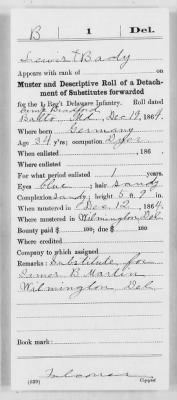 B 1 Del.
Bady
Appears with rank of on
Muster and Descriptive Roll of a Detach-
ment of Substitutes forwarded
for the 1 Reg't Delaware Infantry. Roll dated
Camp Bradford
Balto Md Dec 19, 1864.
Where born Germany
Age 34 y'rs; occupation
When enlisted , 186 .
Where enlisted
For what period enlisted 1 years.
Eyes blue ; hair sandy
Complexion sandy; height 5 ft. 9 in.
When mustered in Dec 12, 1864.
Where mustered in Wilmington, Del
Bounty paid $ 100; due $ 100
Where credited
Company to which assigned
Remarks: Substitute for
B Martin
Wilmington Del
Book mark:
(339) Copyist